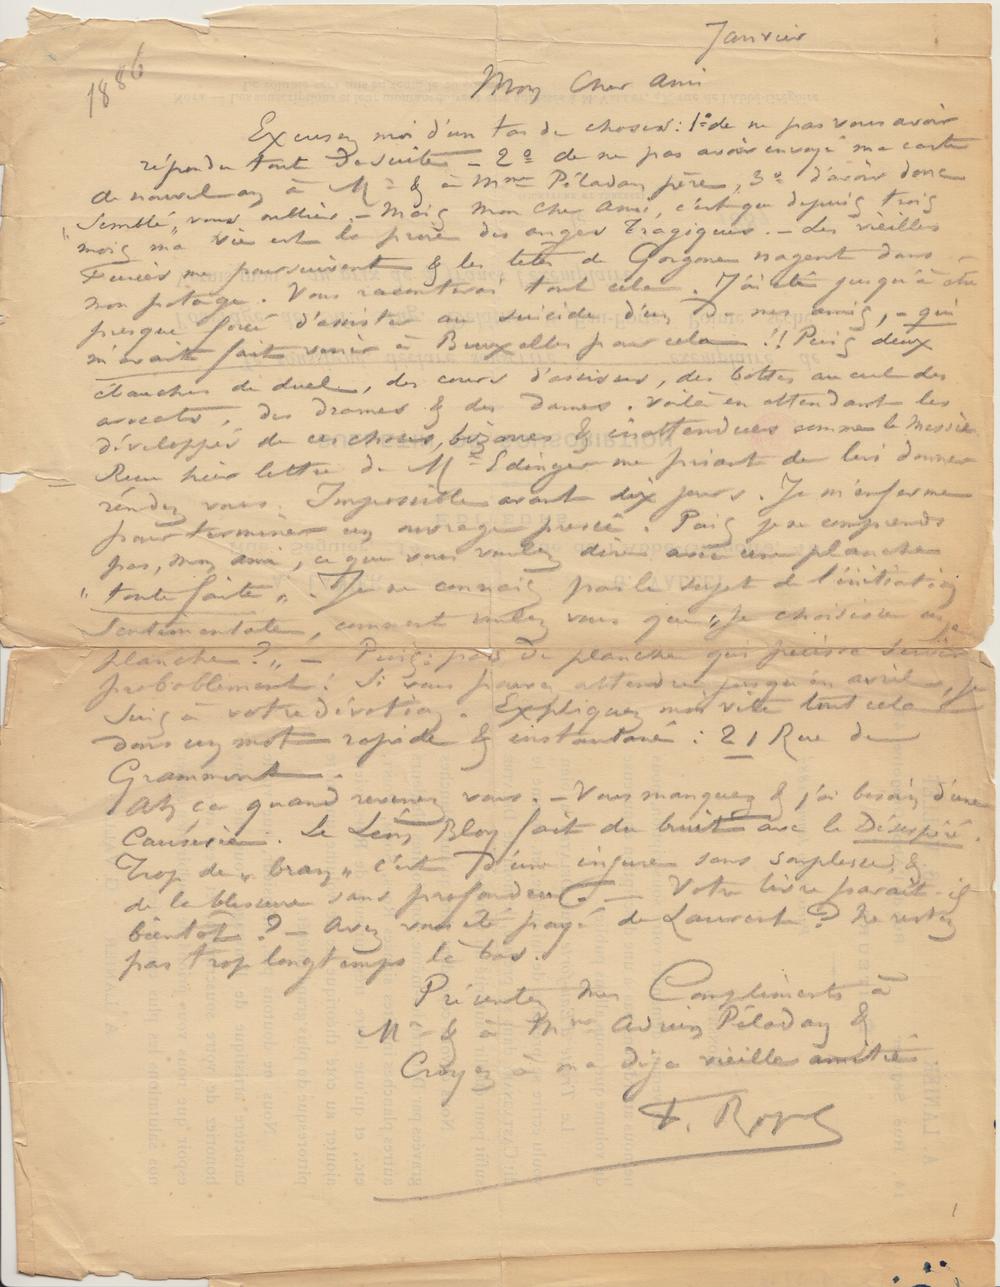 Janvier
1886
Mon Cher Ami
Excusez moi d'un tas de choses : 1º de ne pas vous avoir
répondu tout de suite – 2º de ne pas avoir envoyé ma carte
de nouvel an à Mr & à Mme Péladan père, 3º d'avoir donc
"semblé" vous oublier. – Mais mon cher Ami, c'est que depuis trois
mois ma vie est la proie des anges tragiques. – des vieilles
Furies me poursuivent & les têtes de Gorgone nagent dans
mon potage. Vous raconterai tout cela. J'ai été jusqu'à être
presque forcé d'assister au suicide d'un de mes amis, – qui
m'avait fait venir à Bruxelles pour cela !! Puis deux
ébauches de duel, des cours d'assises, des bottes au cul des
avocats, des drames & des dames. Voilà en attendant les
développés de ces choses, bizarres & inattendues comme le Messie.
Reçu hier lettre de Mr Edinger me priant de lui donner
rendez vous. Impossible avant dix jours. Je m'enferme
pour terminer un ouvrage pressé. Puis je ne comprends
pas, mon ami, ce que vous voulez dire avec une planche
"toute faite". Je ne connais pas le sujet de l'initiation
Sentimentale, comment voulez vous que "je choisisse une
planche ?" – Puis : pas de planche qui puisse servir
probablement ! Si vous pouvez attendre jusqu'en avril, je
suis à votre dévotion. Expliquez moi vite tout cela
dans un mot rapide & instantané : 21 Rue de
Grammont.
Ah ça quand revenez vous. – Vous manquez & j'ai besoin d'une
Causerie. Le Léon Bloy fait du bruit avec le Désespéré.
Trop de "bran" c'est d'une injure sans souplesse, &
de la blessure sans profondeur. – Votre livre paraît il
bientôt ? – Avez vous été payé de Laurent ? Ne restez
pas trop longtemps là bas.
Présentez mes Compliments à
Mr & à Mme Adrien Péladan &
Croyez à ma déjà vieille amitié
F. Rops